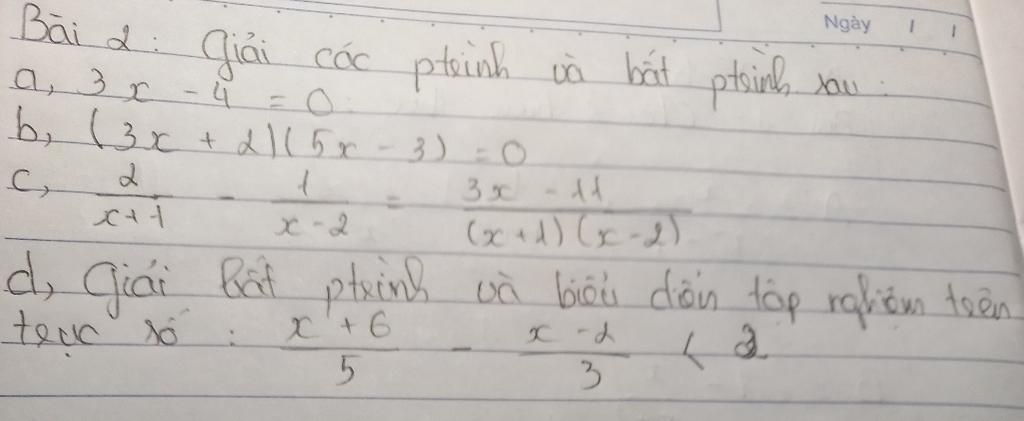 Ngày / /
Bài 2 : Giải các ptrình và bất ptrình sau :
a, 3x - 4 = 0
b, (3x + 2)(5x - 3) = 0
c, 2/(x+1) - 1/(x-2) = (3x - 11)/((x+1)(x-2))
d, Giải bất ptrình và biểu diễn tập nghiệm trên
trục số : (x + 6)/5 - (x - 2)/3 < 2